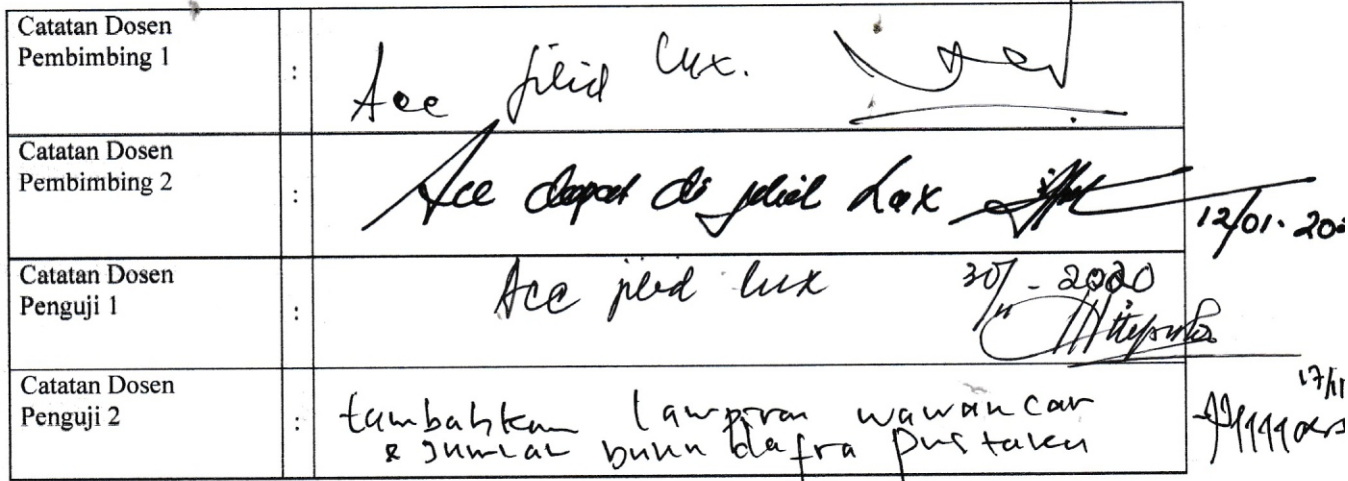 Catatan Dosen
Pembimbing 1
:
Acc jilid lux.
Catatan Dosen
Pembimbing 2
:
Acc dapat di jilid Lux
12/01-202
Catatan Dosen
Penguji 1
:
Acc jilid lux 30/11-2020
Catatan Dosen
Penguji 2
:
tambahkan lampiran wawancar
& Jumlah buku dafta pustaka
17/11